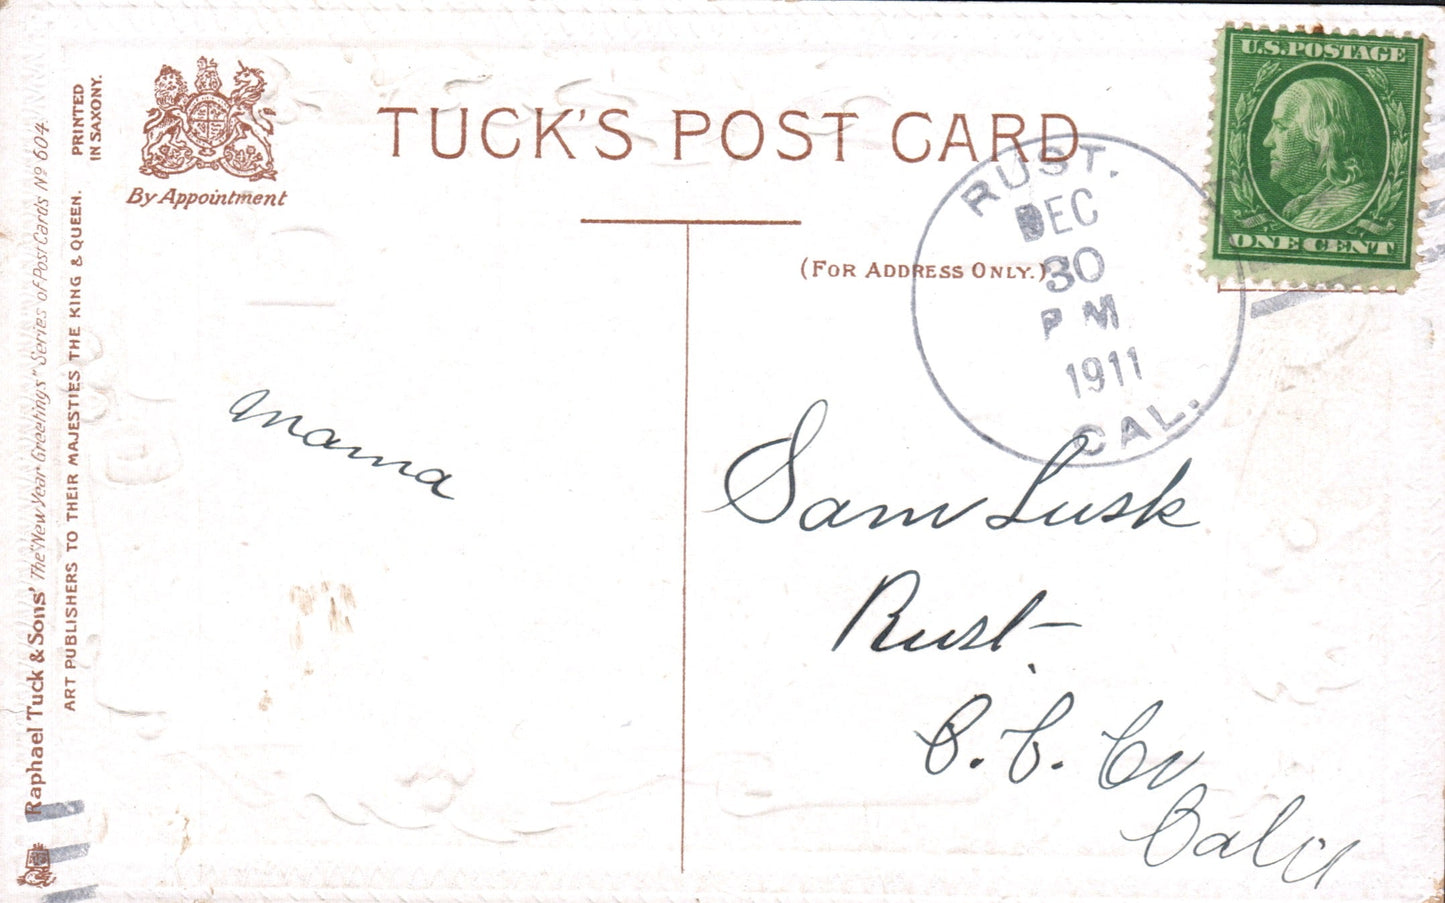 PRINTED
IN SAXONY.
Raphael Tuck & Sons' The "New Year Greetings" Series of Post Cards No 604.
ART PUBLISHERS TO THEIR MAJESTIES THE KING & QUEEN.
By Appointment
TUCK'S POST CARD
(FOR ADDRESS ONLY.)
U.S. POSTAGE
ONE CENT
RUST.
DEC
30
P M
1911
CAL.
mama
Sam Lusk
Rust
C. C. Co